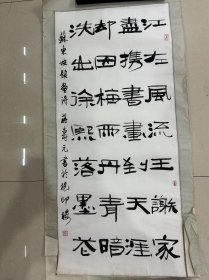 江左風流王謝家
盡攜書畫到天涯
却因梅雨丹青暗
洗出徐熙落墨花
蘇東坡題 蔣壽元書於